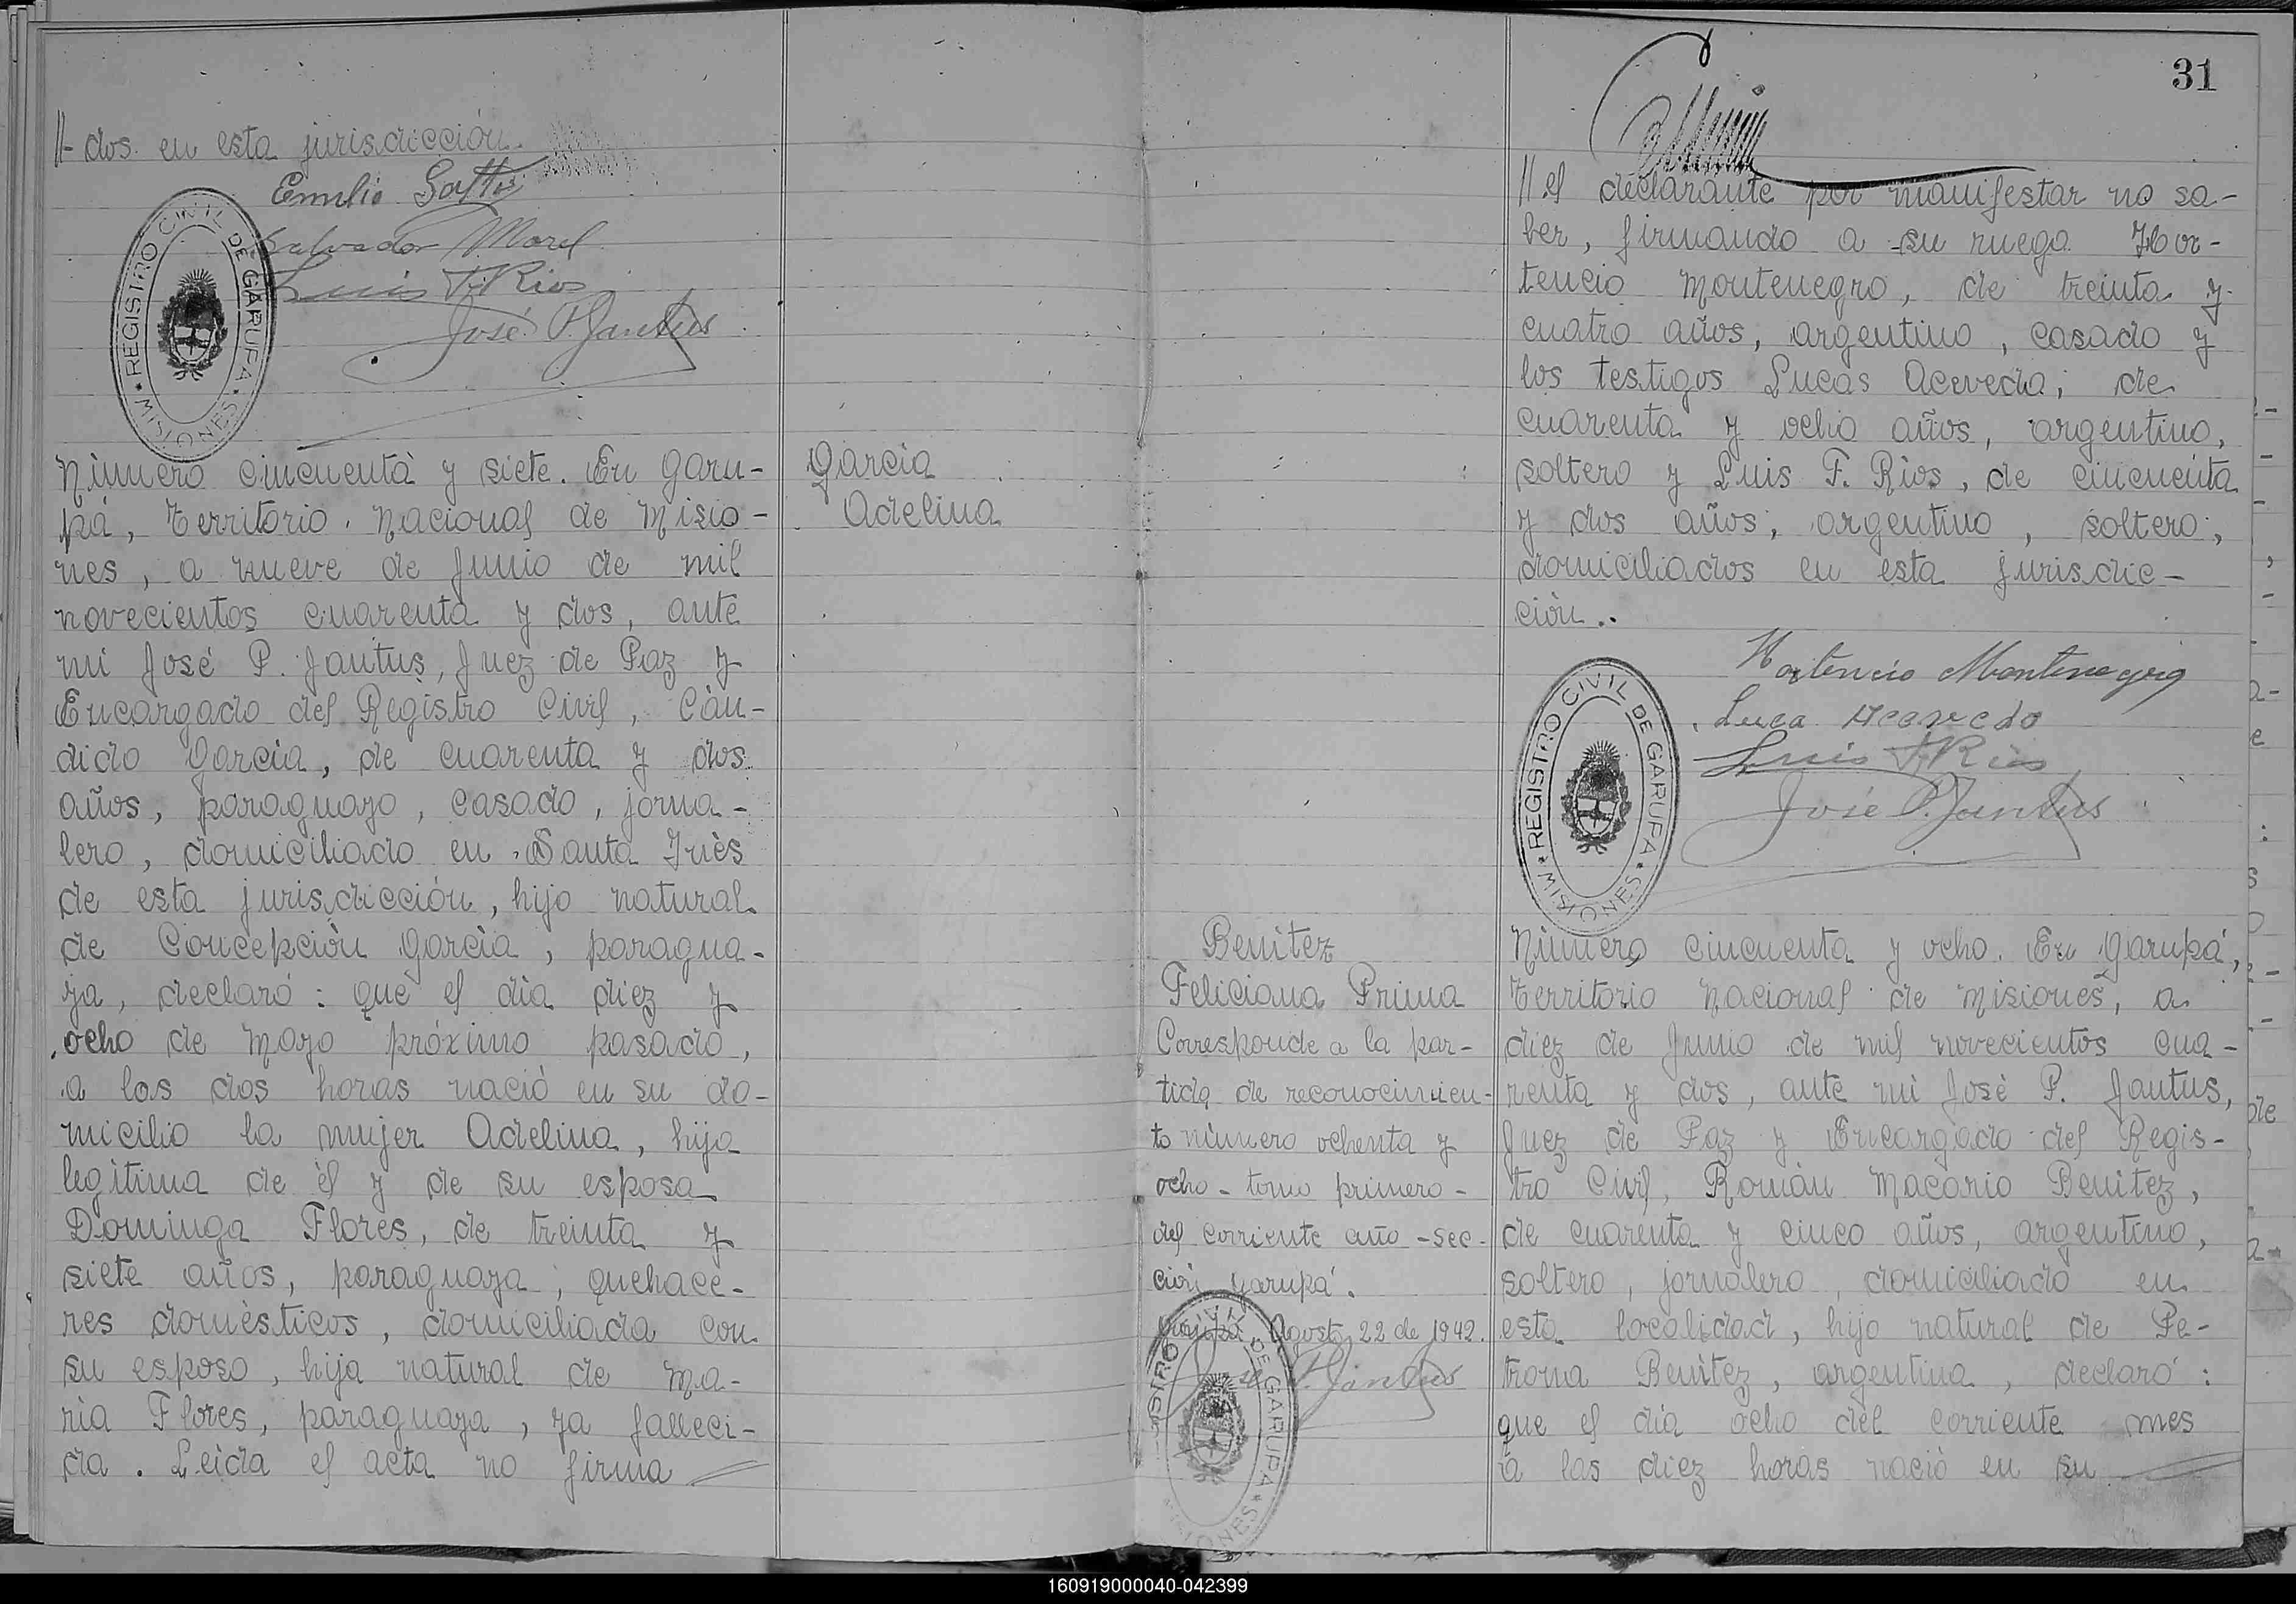 //- dos en esta jurisdicción.
Emilio
Salvador Morel
Luis F. Rios
José P. Jantus
REGISTRO CIVIL DE GARUPA
* MISIONES *
Número cincuenta y siete. En Garu-
pá, Territorio Nacional de Misio-
nes, a nueve de Junio de mil
novecientos cuarenta y dos, ante
mi José P. Jantus, Juez de Paz y
Encargado del Registro Civil, Cán-
dido García, de cuarenta y dos
años, paraguayo, casado, jorna-
lero, domiciliado en Santa Inés
de esta jurisdicción, hijo natural
de Concepción García, paragua-
ya, declaró: que el día diez y
ocho de Mayo próximo pasado,
a las dos horas nació en su do-
micilio la mujer Adelina, hija
legítima de él y de su esposa
Dominga Flores, de treinta y
siete años, paraguaya, quehace-
res domésticos, domiciliada con
su esposo, hija natural de Ma-
ría Flores, paraguaya, ya falleci-
da. Leida el acta no firma
García
Adelina
31
// el declarante por manifestar no sa-
ber, firmando a su ruego Hor-
tencio Montenegro, de treinta y
cuatro años, argentino, casado y
los testigos Lucas Acevedo, de
cuarenta y ocho años, argentino,
soltero y Luis F. Rios, de cincuenta
y dos años, argentino, soltero,
domiciliados en esta jurisdic-
ción..
Hortencio Montenegro
Luca Acevedo
Luis F. Rios
José P. Jantus
REGISTRO CIVIL DE GARUPA
* MISIONES *
Benitez
Feliciana Prima
Corresponde a la par-
tida de reconocimien-
to número ochenta y
ocho - tomo primero -
del corriente año - sec-
ción Garupá.
Garupá Agosto 22 de 1942.
José P. Jantus
REGISTRO CIVIL DE GARUPA
* MISIONES *
Número cincuenta y ocho. En Garupá,
Territorio Nacional de Misiones, a
diez de Junio de mil novecientos cua-
renta y dos, ante mi José P. Jantus,
Juez de Paz y Encargado del Regis-
tro Civil, Román Macario Benitez,
de cuarenta y cinco años, argentino,
soltero, jornalero, domiciliado en
esta localidad, hijo natural de Pe-
trona Benitez, argentina, declaró:
que el día ocho del corriente mes
a las diez horas nació en su
160919000040-042399